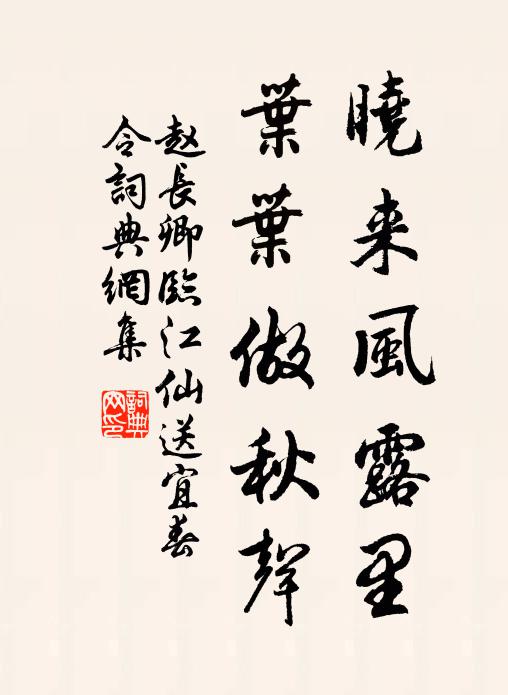 曉来風露里
葉葉做秋聲
赵長卿臨江仙送宜春
令詞典網集
詞典网印